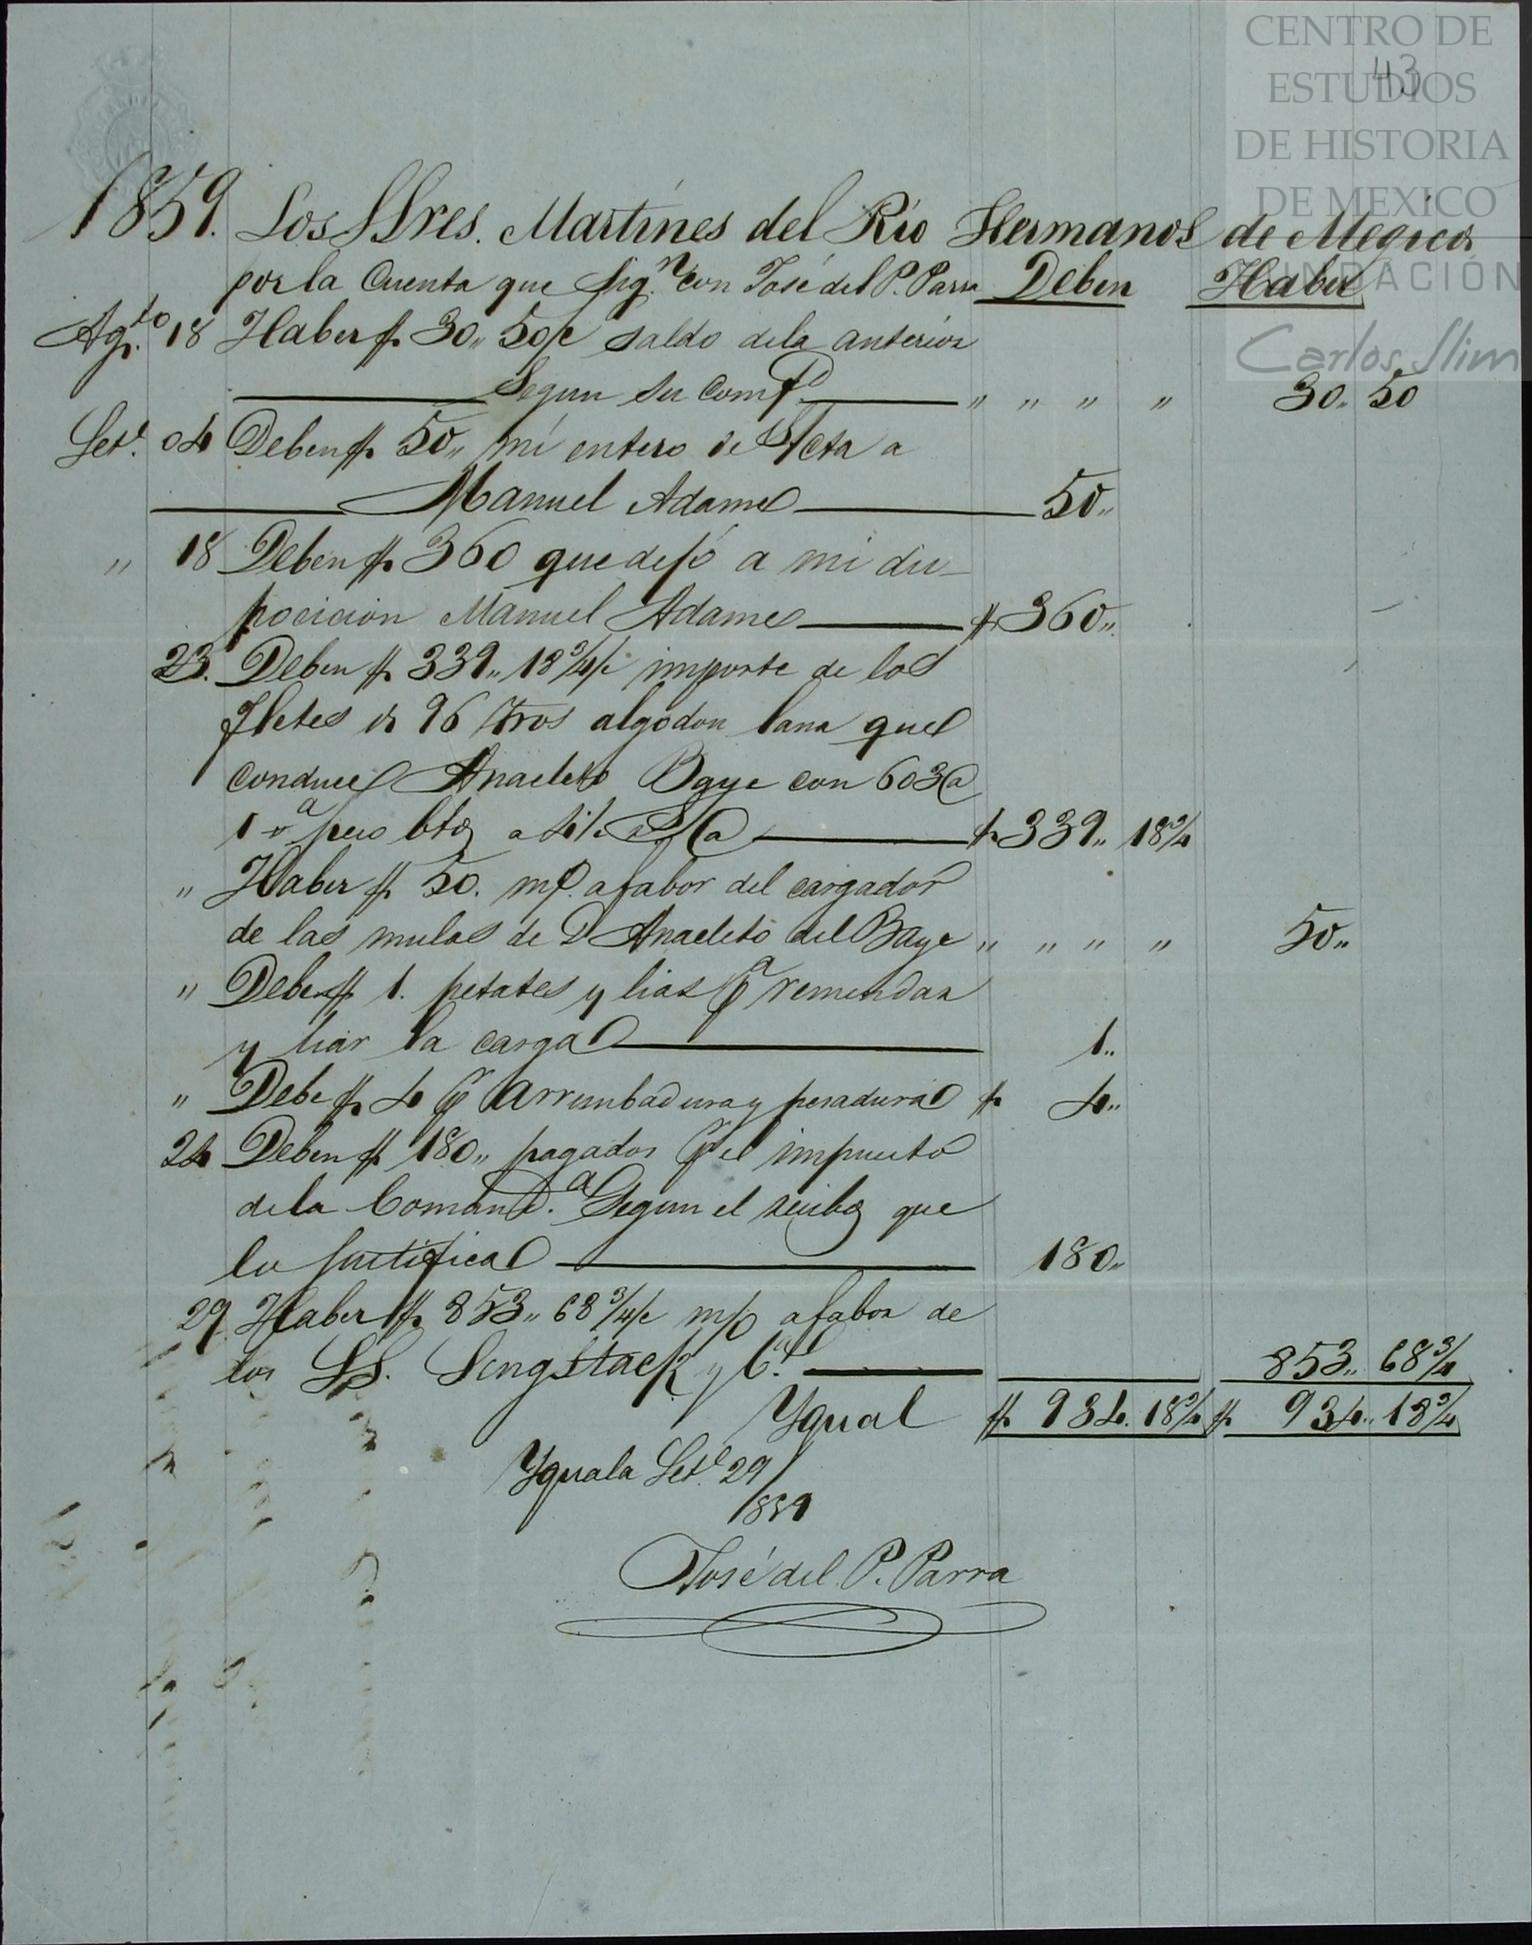 CENTRO DE
ESTUDIOS
DE HISTORIA
DE MEXICO
FUNDACIÓN
Carlos Slim
43
1859. Los SSres. Martínes del Rio Hermanos de Megico
por la Cuenta que sig.n con José del P. Parra Deben Haber
Agt.to 18 Haber $ 30,, 50/c saldo dela anterior
Segun su conf.d ,, ,, ,, ,, 30,, 50
Set.e 04 Deben $ 50,, mi entero de S/cta a
Manuel Adame 50,,
,, 18 Deben $ 360 que dejó a mi dis-
pocicion Manuel Adame $ 360,,
23. Deben $ 339,, 18 3/4/c importe de los
fletes de 96 tros algodon lana que
conduce Anacleto Baye con 603 @
1 a peso bto a $ 339,, 18 3/4
,, Haber $ 50. m/l. afabor del cargador
de las mulas de D Anacleto del Baye ,, ,, ,, ,, 50,,
,, Deben $ 1. petates y lias p.a remendar
y liar la carga 1,,
,, Debe $ 4 p.r arrumbadura y pesadura $ 4,,
24 Deben $ 180,, pagados p.r el impuesto
dela Comand.a Segun el recibo que
lo justifica 180,,
29 Haber $ 853,, 68 3/4/c m/l afabor de
los SS. Sengstack y C.a 853,, 68 3/4
Ygual $ 934,, 18 3/4 $ 934,, 18 3/4
Yguala Set.e 29/
1859
José del P. Parra